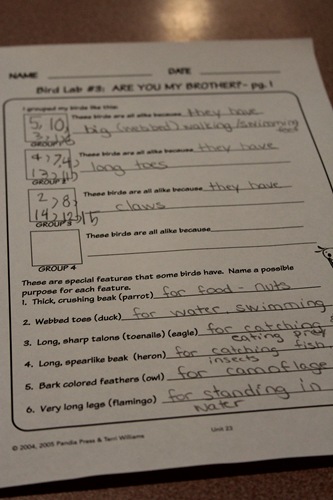 NAME DATE
Bird Lab #3: ARE YOU MY BROTHER?- pg.1
I grouped my birds like this:
5, 10, These birds are all alike because they have
3, big (webbed) walking/swimming
GROUP 1 feet
4, 7, These birds are all alike because they have
13, 11 long toes
GROUP 2
2, 8, These birds are all alike because they have
14, 12, 15 claws
GROUP 3
These birds are all alike because
GROUP 4
These are special features that some birds have. Name a possible
purpose for each feature.
1. Thick, crushing beak (parrot) for food - nuts
2. Webbed toes (duck) for water, swimming
3. Long, sharp talons (toenails) (eagle) for catching,
eating prey
4. Long, spearlike beak (heron) for catching fish
insects
5. Bark colored feathers (owl) for camoflage
6. Very long legs (flamingo) for standing in
water
© 2004, 2005 Pandia Press & Terri Williams Unit 23